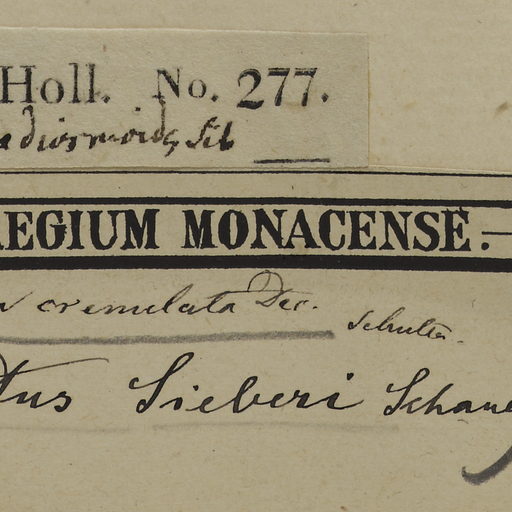 Holl. No. 277.
Sib
REGIUM MONACENSE.
crenulata Dec. Schultes.
tus Sieberi Schauer